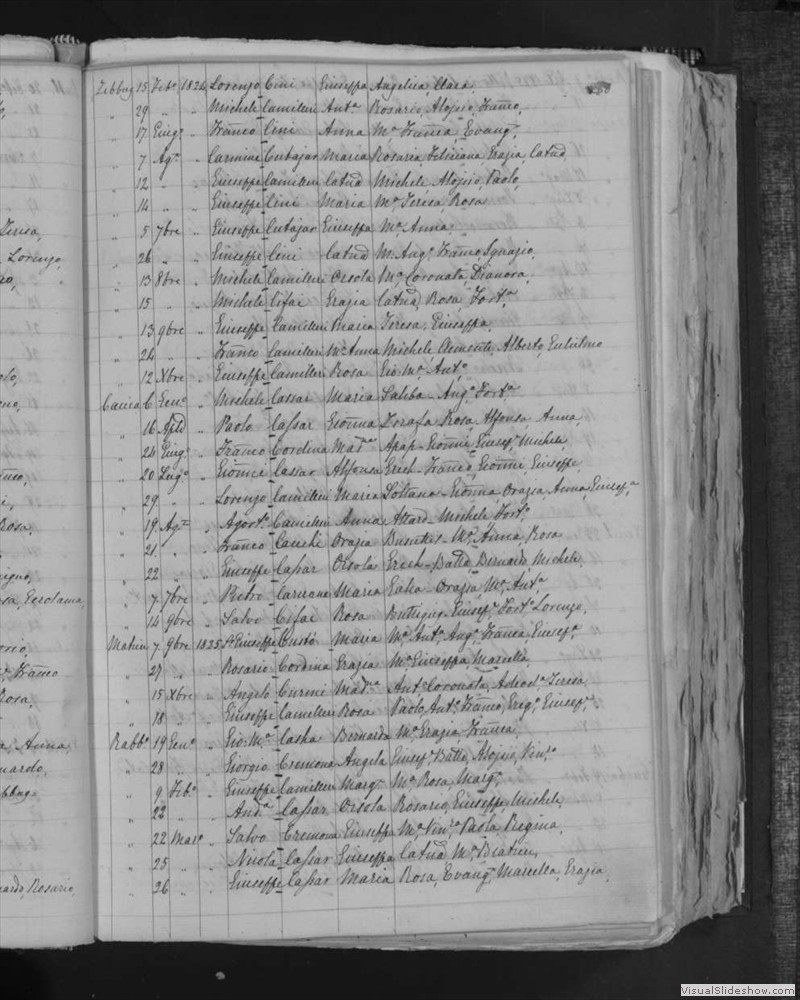 Zebbug 15 Feb.o 1824 Lorenzo Cini Giuseppa Angelica, Clara,
" 29 " " Michele Camilleri Ant.a Rosario, Aloisio, Franco,
" 17 Giug.o " Franco Cini Anna M.a Franca, Evang.
" 7 Ag.o " Carmine Cutajar Maria Rosaria Feliciana Grazia, Catna
" 12 " " Giuseppe Camilleri Catna Michele Aloisio, Paolo,
" 14 " " Giuseppe Cini Maria M.a Teresa, Rosa
" 5 7bre " Giuseppe Cutajar Giuseppa M.a Anna
" 26 " " Giuseppe Cini Catna M. Ang.a Franco, Ignazio,
" 13 8bre " Michele Camilleri Orsola M.a Coronata, Dianora,
" 15 " " Michele Cifai Grazia Catna, Rosa, Fort.a
" 13 9bre " Giuseppe Camilleri Maria Teresa, Giuseppa,
" 24 " " Franco Camilleri M.a Anna Michele, Clemente, Alberto,
" 12 Xbre " Giuseppe Camilleri Rosa Gio: M.a Ant.o
6 Gen.o " Michele Cassar Maria Saliba - Ang.a Fort.a
" 16 Aple " Paolo Cassar Gionna Zorafa Rosa, Alfonsa Anna,
" 24 Giug.o " Franco Cordina Mad.na Apap - Gionni, Giusep.e Michele,
" 20 Lug.o " Gionni Cassar Alfonsa Grech - Franco, Gionni, Giuseppe,
" 29 " " Lorenzo Camilleri Maria Sultana - Gionna, Grazia, Anna, Giusep.a
" 19 Ag.to " Agost.o Camilleri Anna Attard - Michele Fort.o
" 21 " " Franco Cauchi Grazia Busuttil - M.a Anna, Rosa
" 22 " " Giuseppe Cassar Orsola Grech - Batta, Bernardo, Michele,
" 7 7bre " Pietro Caruana Maria Galea - Grazia, M.a Ant.a
" 14 9bre " Salvo Cifai Rosa Buttigieg - Giusep.e Fort.o Lorenzo,
7 9bre 1825 Giuseppe Custò Maria M.a Ant.a Ang.a Franca, Giusep.a
" 27 " " Rosario Cordina Grazia M.a Giuseppa Marcella,
" 15 Xbre " Angelo Curmi Mad.na Ant.a Coronata, Adeod.a Teresa,
" 18 " " Giuseppe Camilleri Rosa Paolo Ant.o Franco, Greg.o Giusep.e
Rabb.o 19 Gen.o " Gio: M.a Caska Bernarda M.a Grazia, Franca,
" 28 " Giorgio Cremona Angela Giusep.e Batta, Aloisio, Vin.zo
" 9 Feb.o " Giuseppe Camilleri Marg.a M.a Rosa, Marg.a
" 22 " And.a Cassar Orsola Rosario, Giuseppe, Michele,
" 22 Mar.o " Salvo Cremona Giuseppa M.a Vin.za Paola, Regina,
" 25 " " Nicola Cassar Giuseppa Catna M.a Beatrice,
" 26 " " Giuseppe Cassar Maria Rosa, Evang.a Marcella, Grazia,
Teresa,
Lorenzo,
Rosa,
Anna,
Rosario,
VisualSlideshow.com